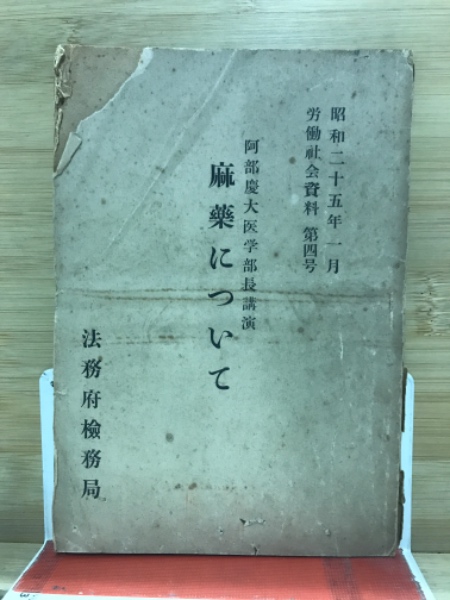 昭和二十五年一月
労働社会資料 第四号
阿部慶大医学部長講演
麻藥について
法務府檢務局